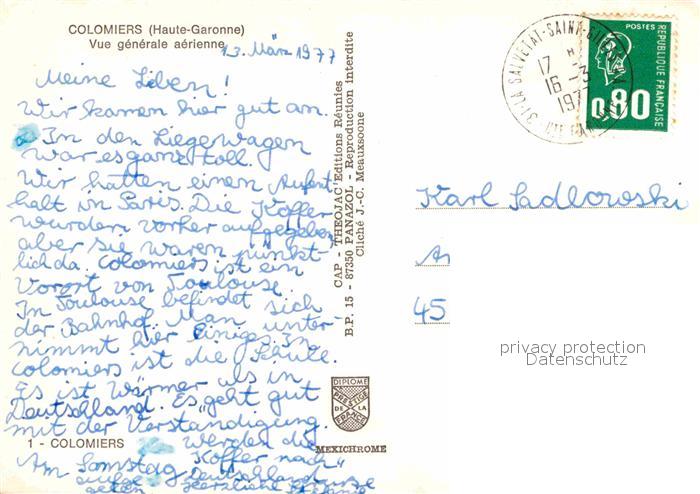 COLOMIERS (Haute-Garonne)
Vue générale aérienne
13. März 1977
Meine Lieben!
Wir kamen hier gut an.
In den Liegewagen
war es ganz toll.
Wir hatten einen Aufent
halt in Paris. Die Koffer
wurden vorher aufgegeben,
aber sie waren pünkt-
lich da. Colomiers ist ein
Vorort von Toulouse
In Toulouse befindet sich
der Bahnhof. Man unter-
nimmt hier Einiges. In
Colomiers ist die Schule.
Es ist Wärmer als in
Deutschland. Es geht gut
mit der Verständigung.
1 - COLOMIERS
Am Samstag werden die
Koffer nach
Deutschland
aufge
geben Herzliche Grüße
CAP - THEOJAC Editions Réunies
B.P. 15 - 87350 PANAZOL - Reproduction interdite
Cliché J.-C. Meauxsoone
DIPLOME
PRESTIGE
DE LA
FRANCE
MEXICHROME
31 LA SALVETAT-SAINT-
17 H
16 - 3
1977
POSTES
REPUBLIQUE FRANÇAISE
0.80
Karl Sadlowski
45
privacy protection
Datenschutz